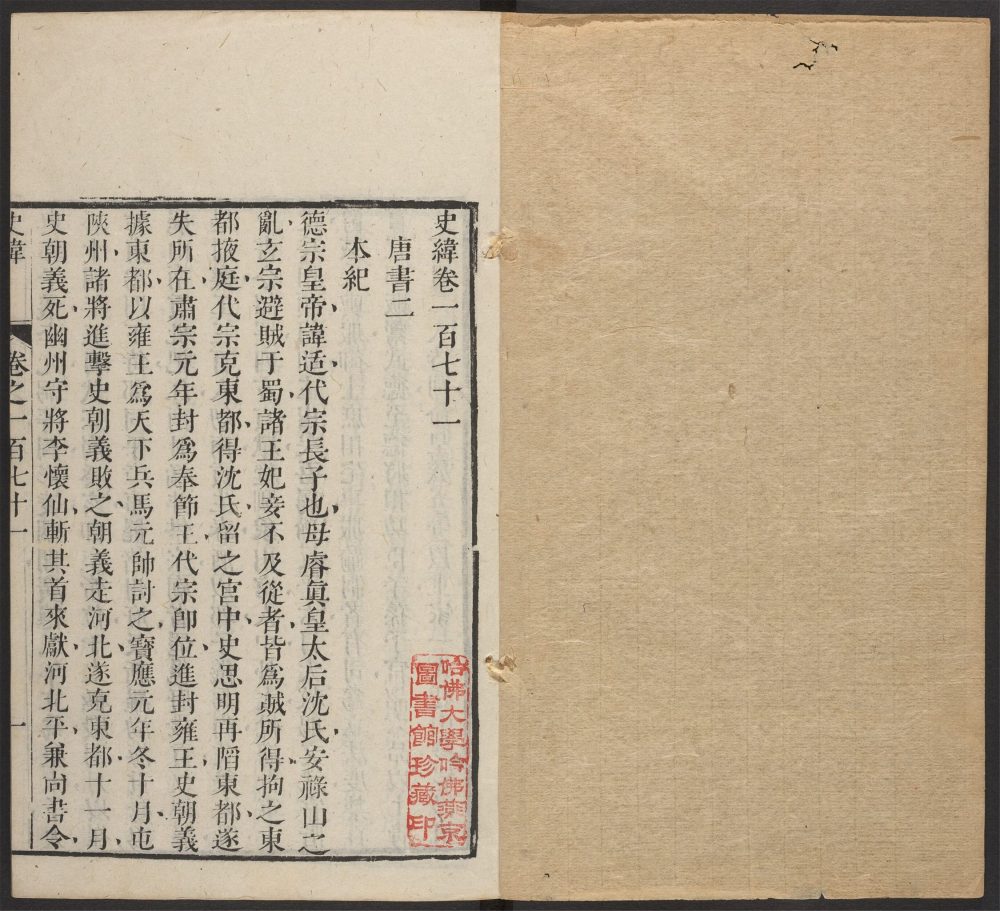 史緯卷一百七十一
唐書二
本紀
德宗皇帝諱适代宗長子也母睿眞皇太后沈氏安祿山之
亂玄宗避賊于蜀諸王妃妾不及從者皆爲賊所得拘之東
都掖庭代宗克東都得沈氏留之宮中史思明再陷東都遂
失所在肅宗元年封爲奉節王代宗卽位進封雍王史朝義
據東都以雍王爲天下兵馬元帥討之寶應元年冬十月屯
陝州諸將進擊史朝義敗之朝義走河北遂克東都十一月
史朝義死幽州守將李懷仙斬其首來獻河北平兼尚書令
史緯
卷之一百七十一
一
哈佛大學哈佛燕京
圖書館珍藏印